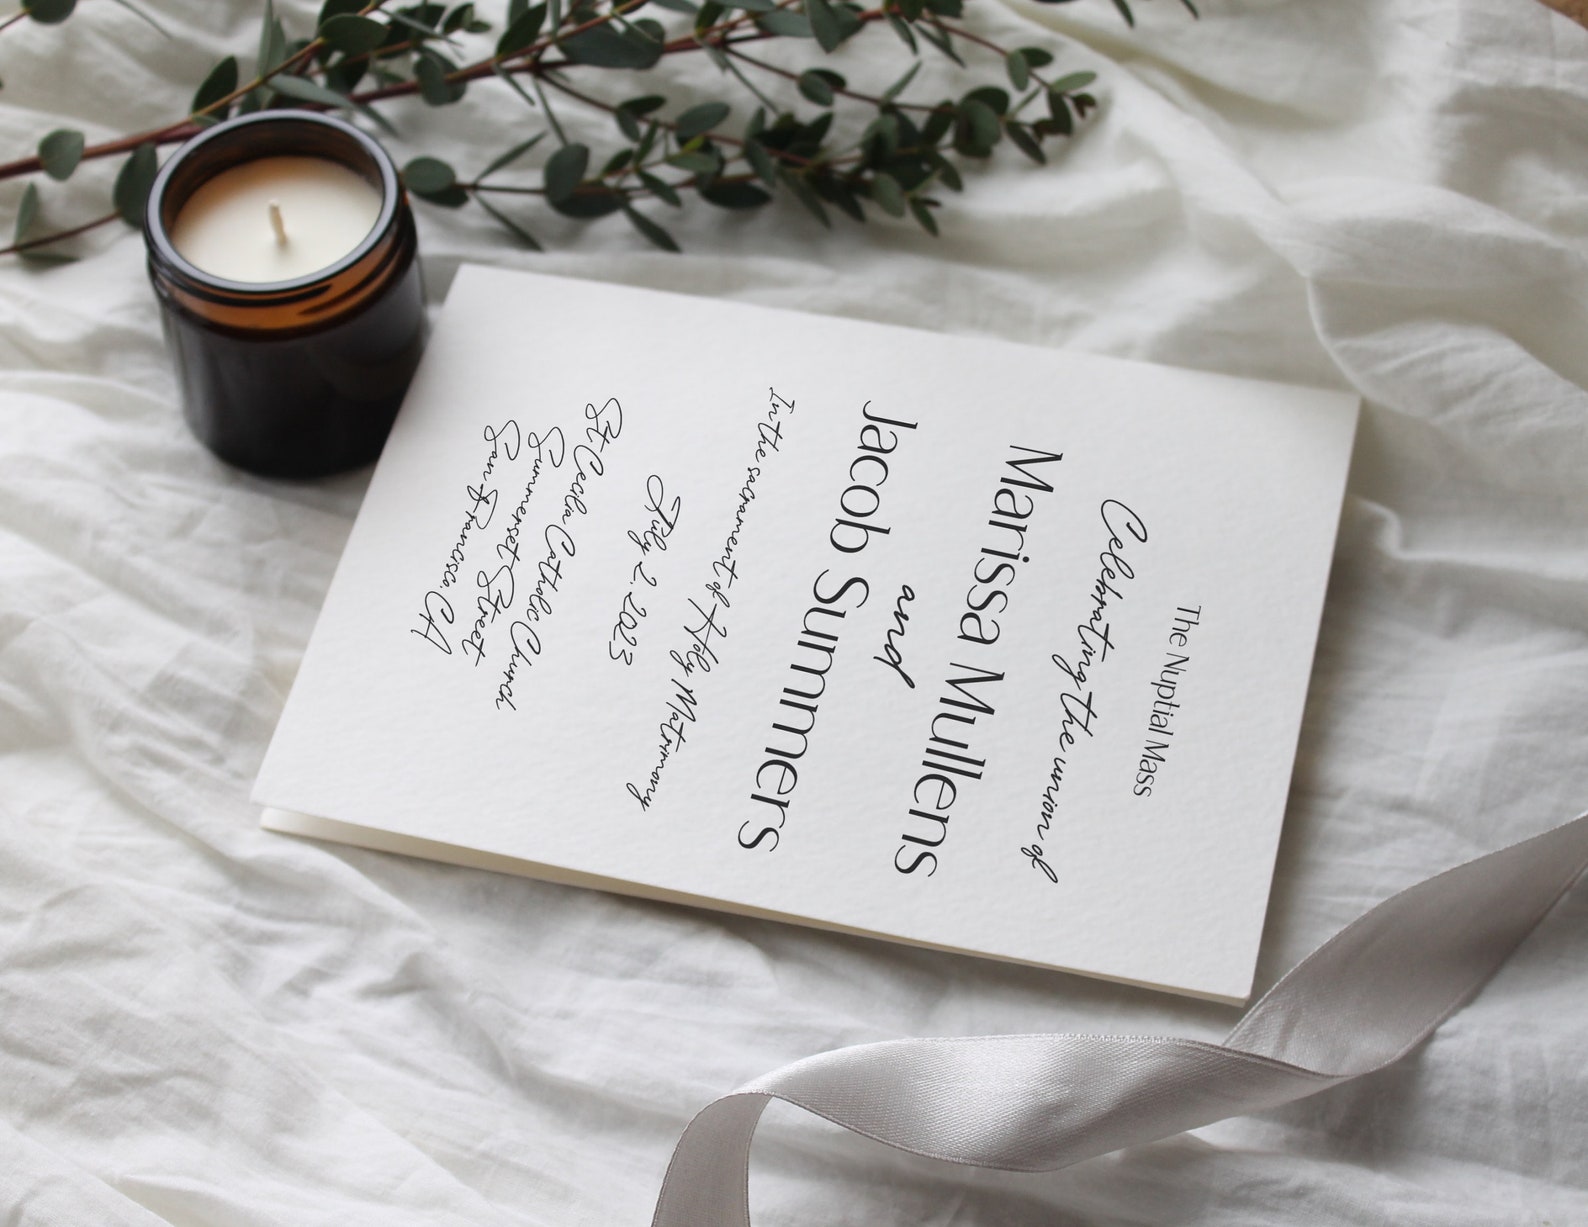 The Nuptial Mass
Celebrating the union of
Marissa Mullens
and
Jacob Summers
In the sacrament of Holy Matrimony
July 2, 2023
St Cecilia Catholic Church
Summerset Street
San Francisco, CA